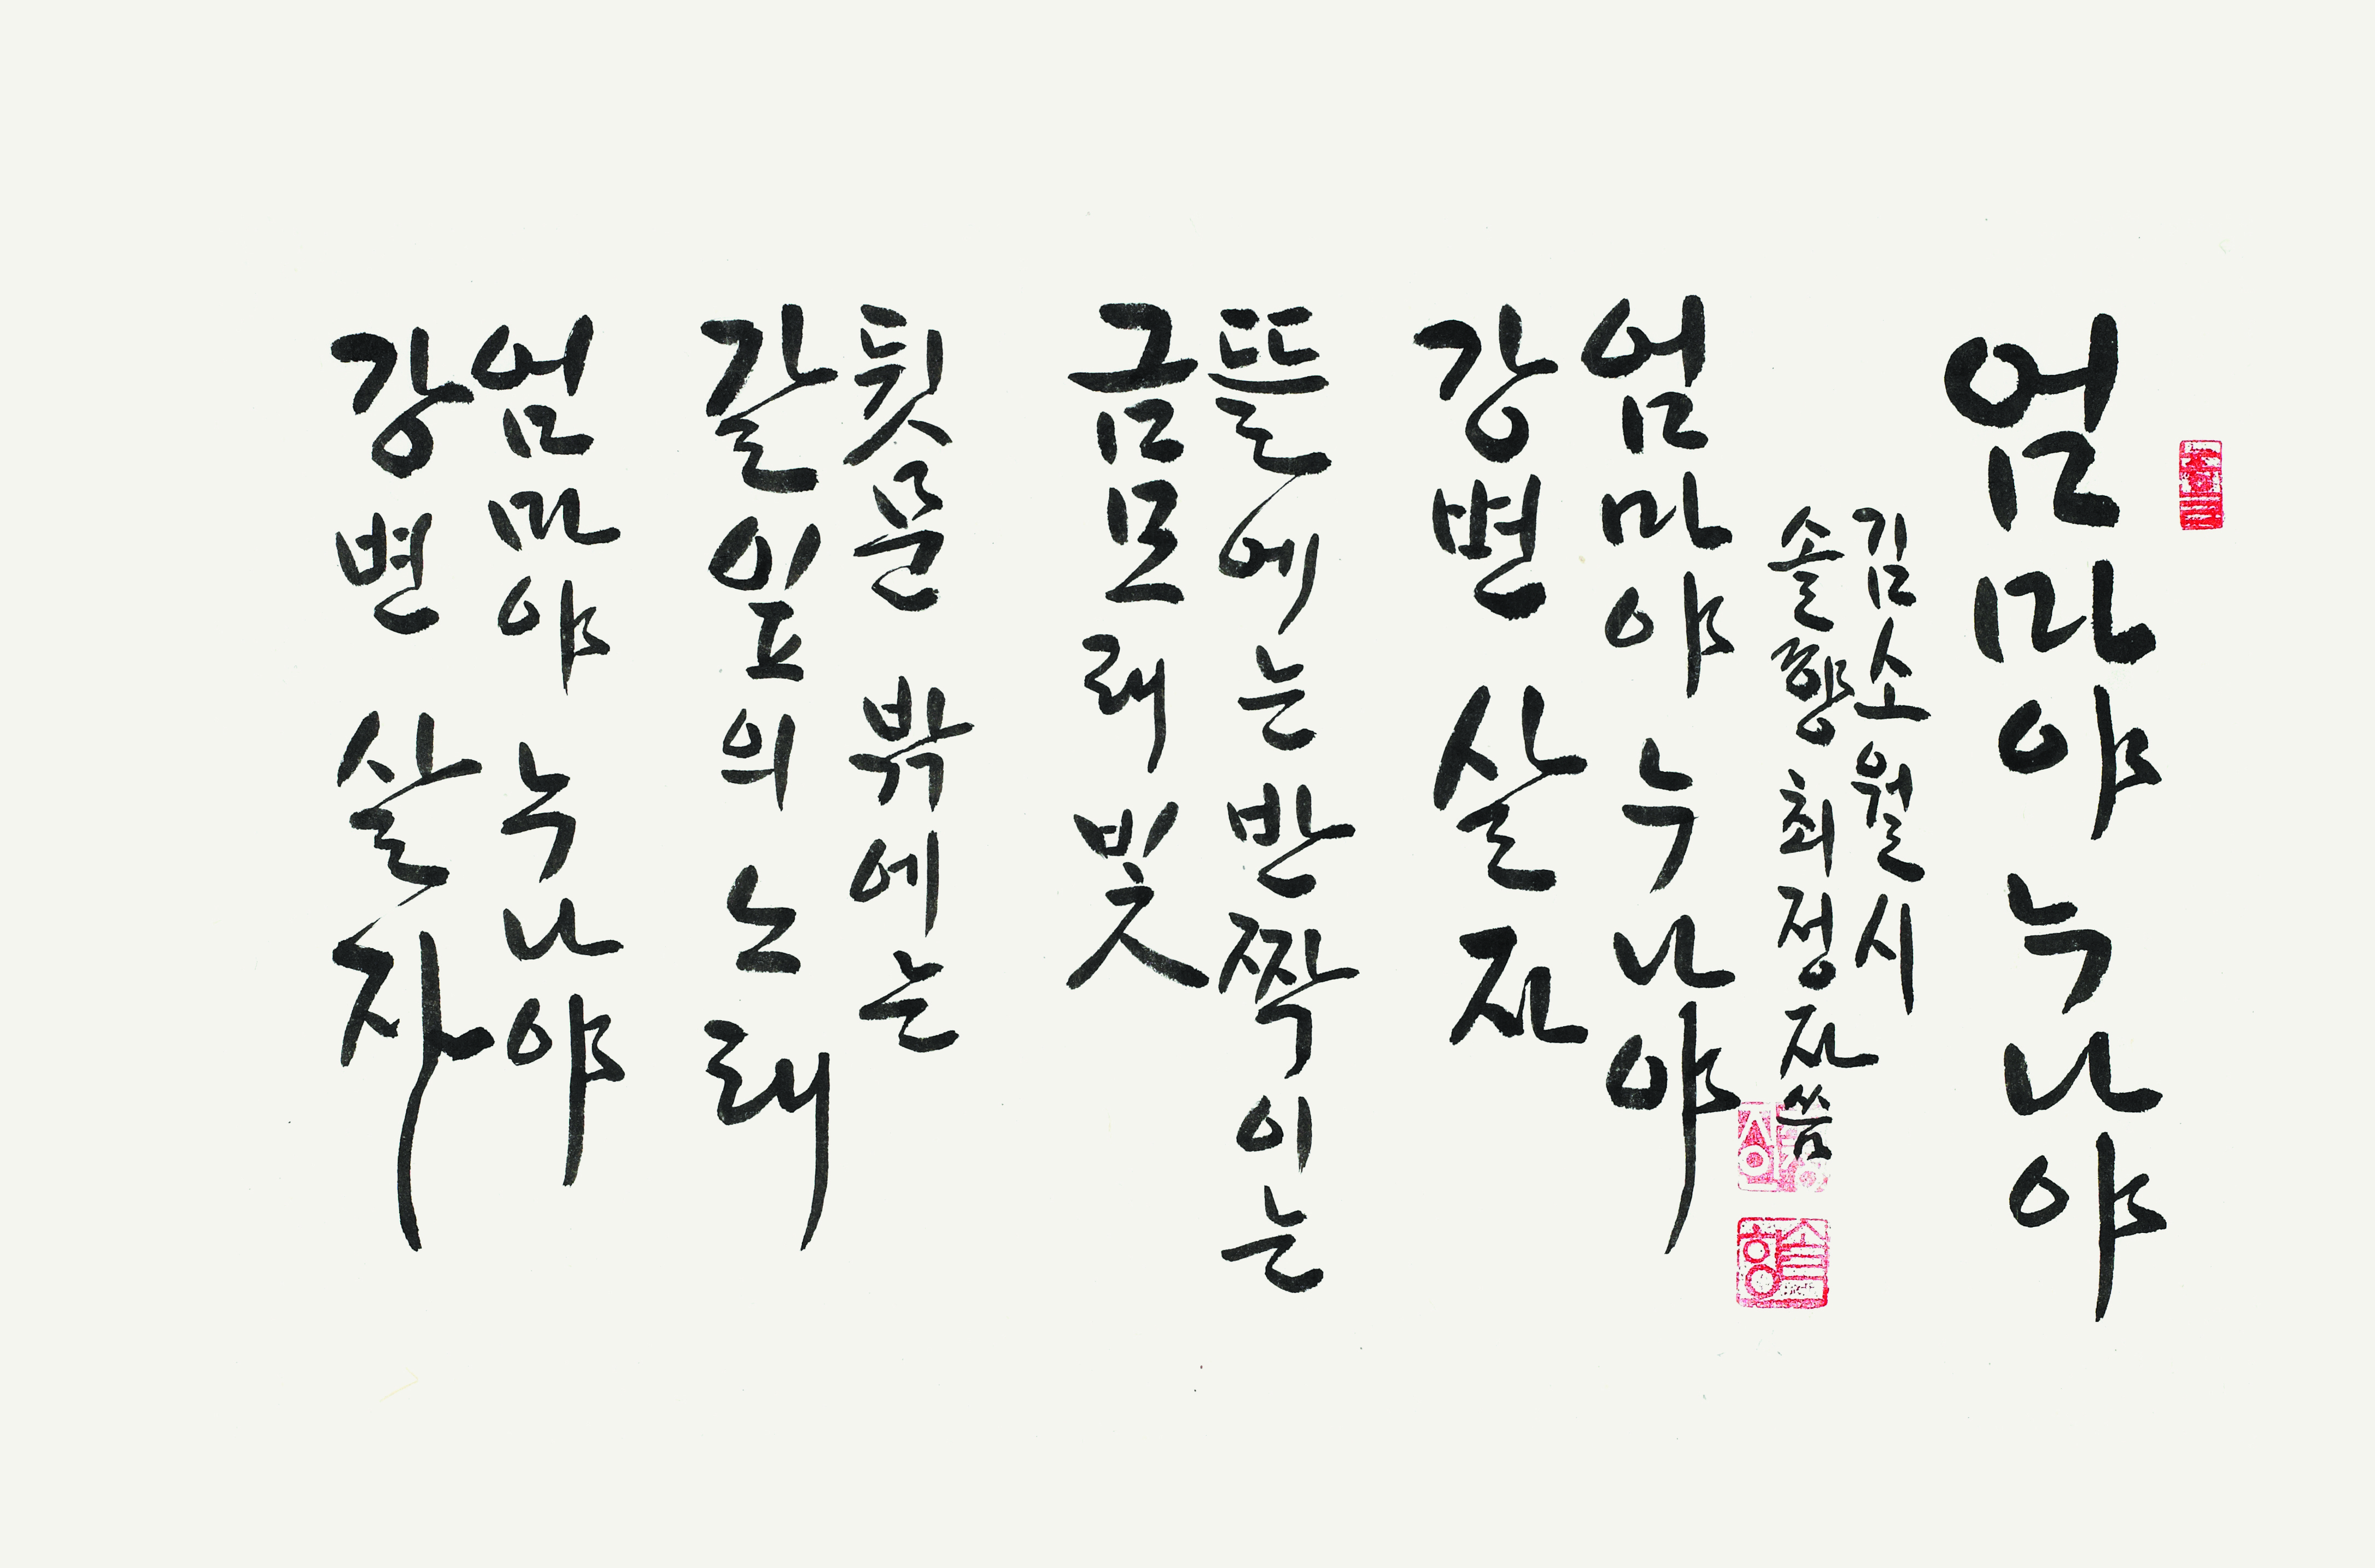 엄마야 누나야
김소월 시
솔향 최정자 씀
엄마야 누나야
강변 살자
뜰에는 반짝이는
금모래 빛
뒷문 밖에는
갈잎의 노래
엄마야 누나야
강변 살자
솔향